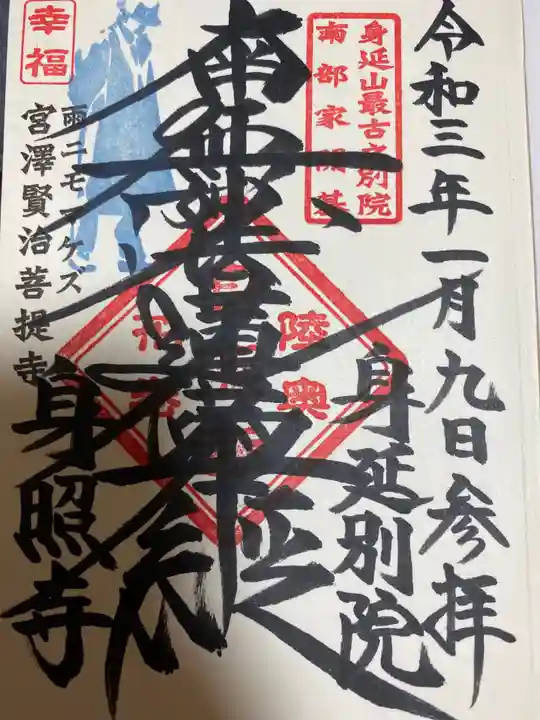 令和三年一月九日参拝
身延山最古之別院
南部家開基
身延別院
陸奥
南無妙法蓮華経
幸福
雨ニモマケズ
宮澤賢治菩提寺
身照寺